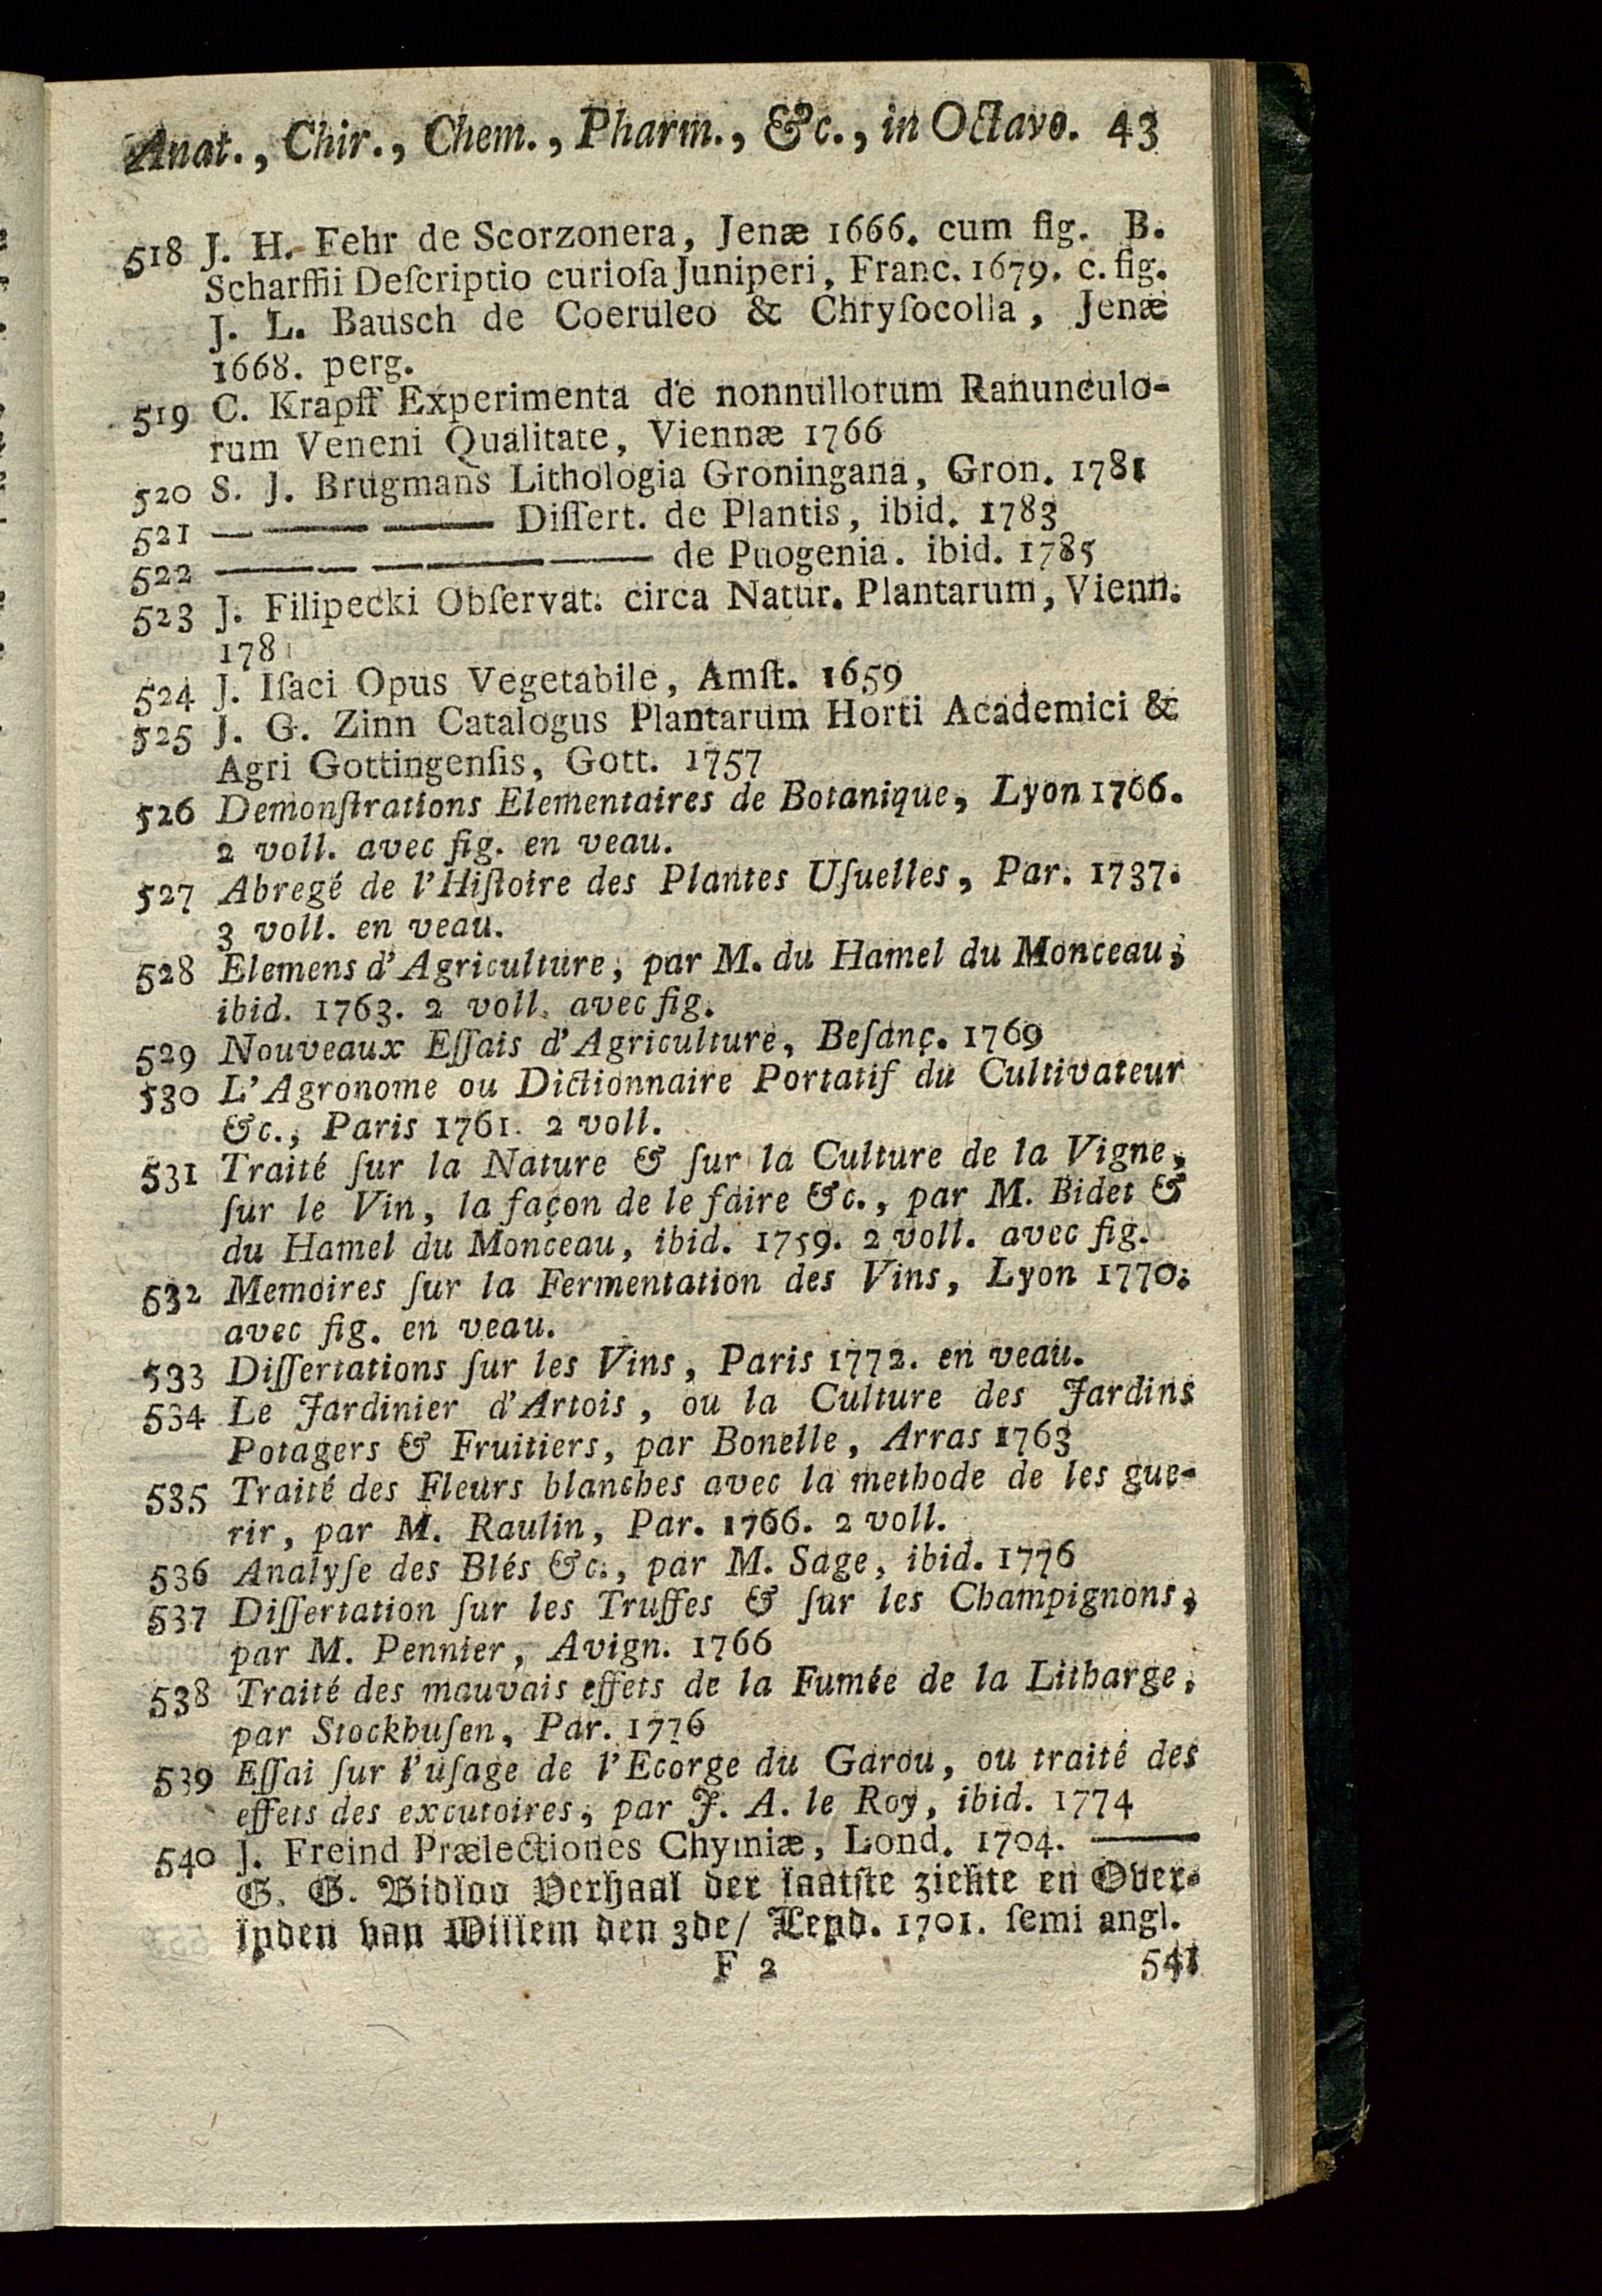 Anat., Chir., Chem., Pharm., &c., in Octavo. 43
518 J. H. Fehr de Scorzonera, Jenæ 1666. cum fig. B.
Scharffii Deſcriptio curioſa Juniperi, Franc. 1679. c. fig.
J. L. Bausch de Coeruleo & Chryſocolla, Jenæ
1668. perg.
519 C. Krapff Experimenta de nonnullorum Ranunculo-
rum Veneni Qualitate, Viennæ 1766
520 S. J. Brugmans Lithologia Groningana, Gron. 1781
521 — —— —— Diſſert. de Plantis, ibid. 1783
522 —— — — —— —— de Puogenia. ibid. 1785
523 J. Filipecki Obſervat. circa Natur. Plantarum, Vienn.
178
524 J. Iſaci Opus Vegetabile, Amſt. 1659
525 J. G. Zinn Catalogus Plantarum Horti Academici &
Agri Gottingenſis, Gott. 1757
526 Demonſtrations Elementaires de Botanique, Lyon 1766.
2 voll. avec fig. en veau.
527 Abregé de l'Hiſtoire des Plantes Uſuelles, Par. 1737.
3 voll. en veau.
528 Elemens d'Agriculture, par M. du Hamel du Monceau,
ibid. 1763. 2 voll. avec fig.
529 Nouveaux Eſſais d'Agriculture, Beſanç. 1769
530 L'Agronome ou Dictionnaire Portatif du Cultivateur
&c., Paris 1761. 2 voll.
531 Traité ſur la Nature & ſur la Culture de la Vigne,
ſur le Vin, la façon de le faire &c., par M. Bidet &
du Hamel du Monceau, ibid. 1759. 2 voll. avec fig.
532 Memoires ſur la Fermentation des Vins, Lyon 1770.
avec fig. en veau.
533 Diſſertations ſur les Vins, Paris 1772. en veau.
534 Le Jardinier d'Artois, ou la Culture des Jardins
Potagers & Fruitiers, par Bonelle, Arras 1763
535 Traité des Fleurs blanches avec la methode de les gue-
rir, par M. Raulin, Par. 1766. 2 voll.
536 Analyſe des Blés &c., par M. Sage, ibid. 1776
537 Diſſertation ſur les Truffes & ſur les Champignons,
par M. Pennier, Avign. 1766
538 Traité des mauvais effets de la Fumée de la Litharge,
par Stockhuſen, Par. 1776
539 Eſſai ſur l'uſage de l'Ecorge du Garou, ou traité des
effets des excutoires, par J. A. le Roy, ibid. 1774
540 J. Freind Prælectiones Chymiæ, Lond. 1704. ——
G. G. Bidloo Verhaal der laatſte ziekte en Over-
lyden van Willem den 3de/ Leyd. 1701. ſemi angl.
F 2 541